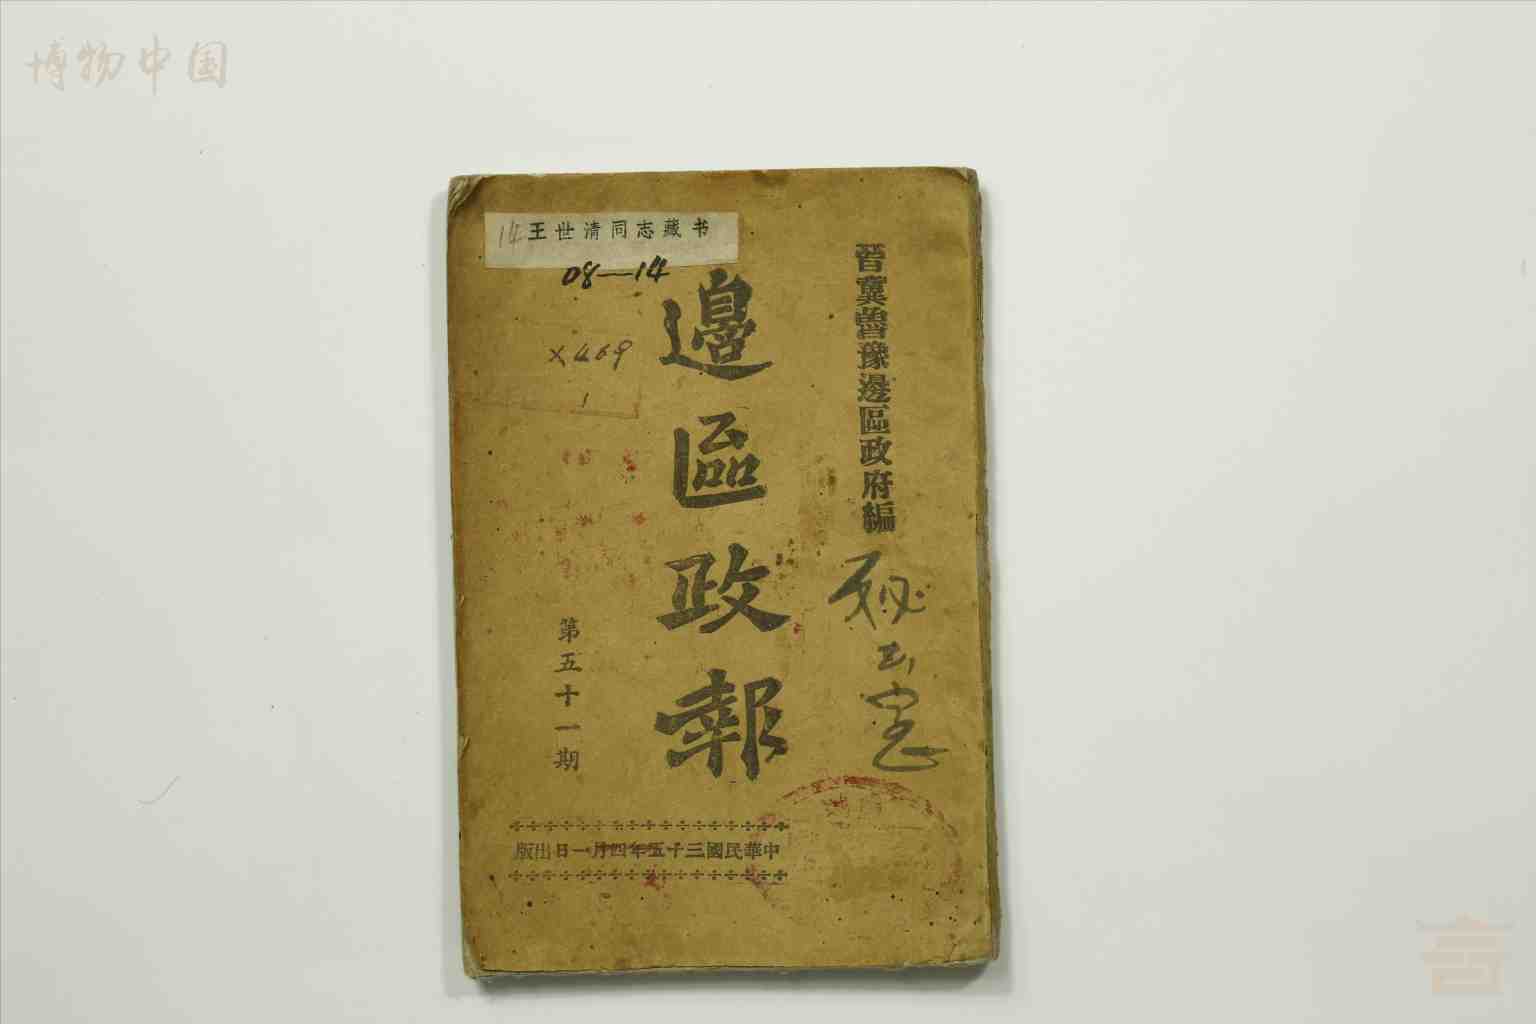 博物中国
14王世清同志藏书
08—14
×469
1
晉冀魯豫邊區政府編
邊區政報
第五十一期
中華民國三十五年四月一日出版